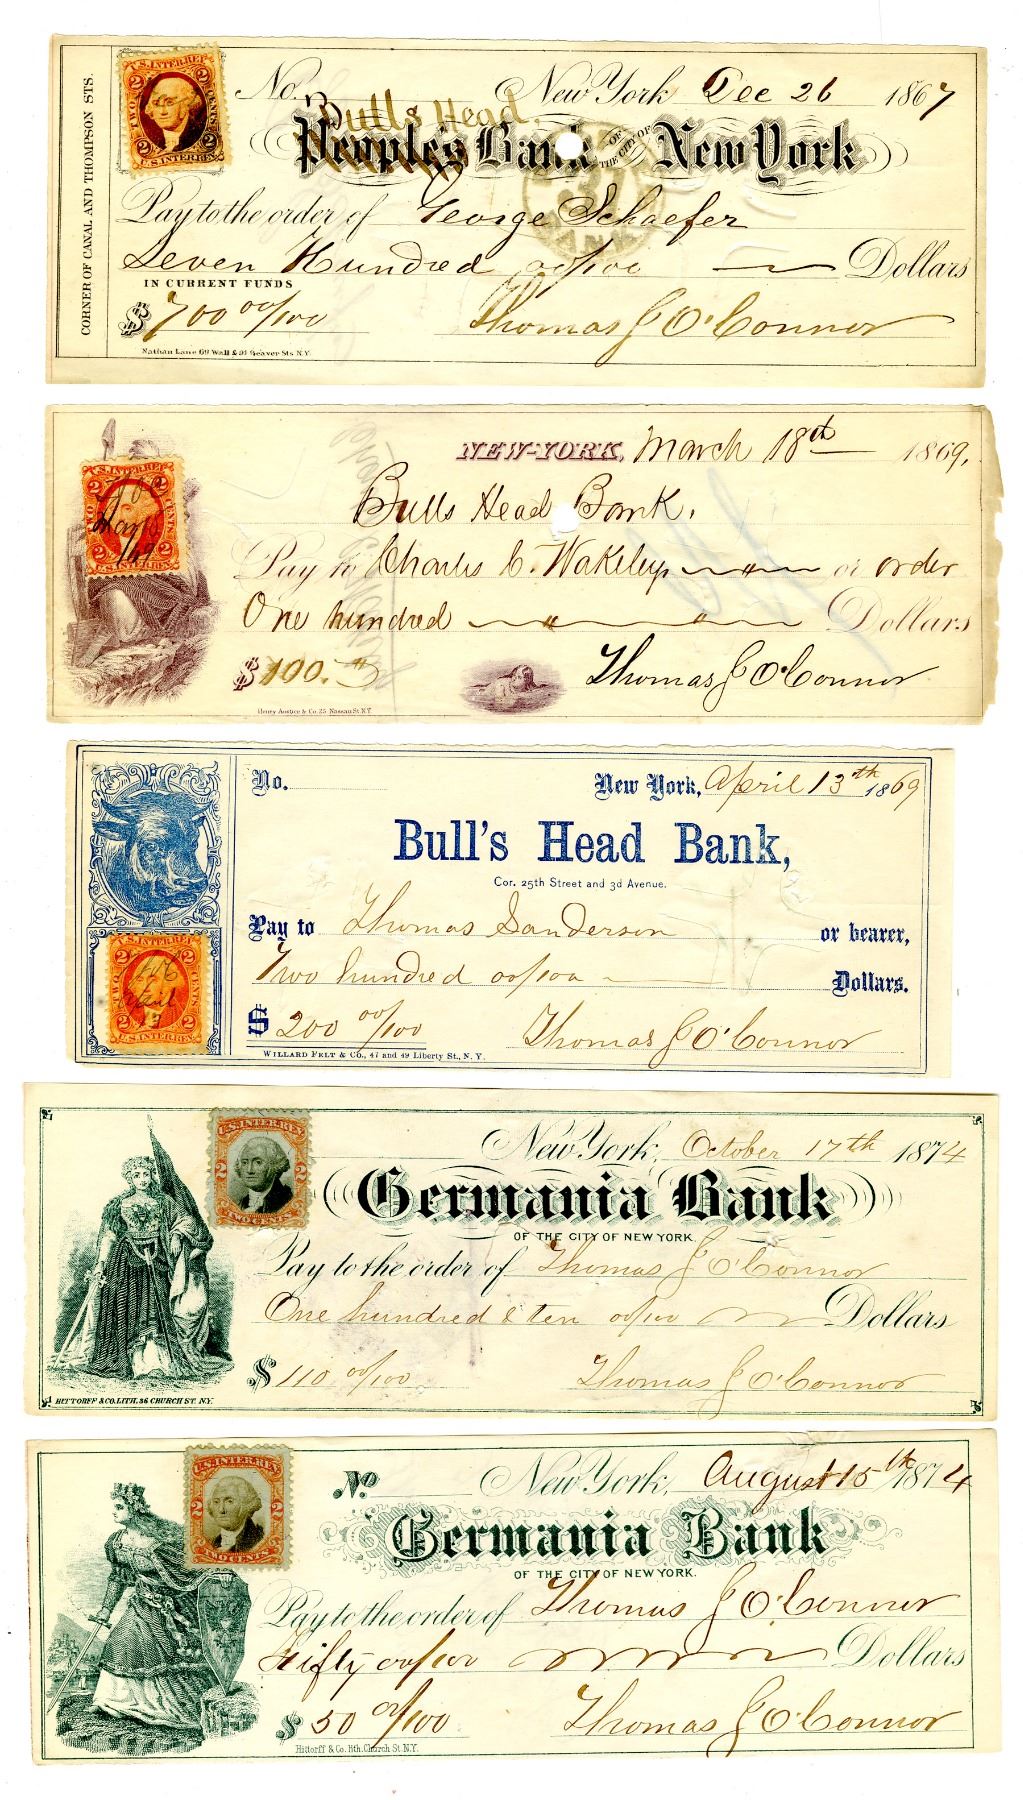 CORNER OF CANAL AND THOMPSON STS.
U.S. INTER. REV.
2 TWO CENTS 2
U.S. INTER. REV.
No. New York Dec 26 1867
Bulls Head.
People's Bank OF THE CITY OF New York
Pay to the order of George Schaefer
Seven Hundred 00/100 Dollars
IN CURRENT FUNDS
$ 700 00/100 Thomas J O'Connor
Nathan Lane 69 Wall & 91 Beaver Sts N.Y.
NEW-YORK, March 18th 1869.
U.S. INTER. REV.
2 TWO CENTS 2
U.S. INTER. REV.
Bulls Head Bank.
Pay to Charles C. Wakeley or order
One hundred Dollars
$ 100. Thomas J O'Connor
Henry Anstice & Co. 25 Nassau St. N.Y.
No. New York, April 13th 1869
Bull's Head Bank,
Cor. 25th Street and 3d Avenue.
Pay to Thomas Sanderson or bearer,
Two hundred 00/100 Dollars.
U.S. INTER. REV.
2 TWO CENTS 2
U.S. INTER. REV.
$ 200 00/100 Thomas J O'Connor
WILLARD FELT & Co., 47 and 49 Liberty St., N.Y.
U.S. INTER. REV.
2 2
TWO CENTS
New York, October 17th 1874
Germania Bank
OF THE CITY OF NEW YORK.
Pay to the order of Thomas J O'Connor
One hundred & ten 00/100 Dollars
$ 110 00/100 Thomas J O'Connor
HITTORFF & CO. LITH. 36 CHURCH ST. N.Y.
U.S. INTER. REV.
2 2
TWO CENTS
No New York, August 15th 1874
Germania Bank
OF THE CITY OF NEW YORK.
Pay to the order of Thomas J O'Connor
Fifty 00/100 Dollars
$ 50 00/100 Thomas J O'Connor
Hittorff & Co. lith. Church St. N.Y.